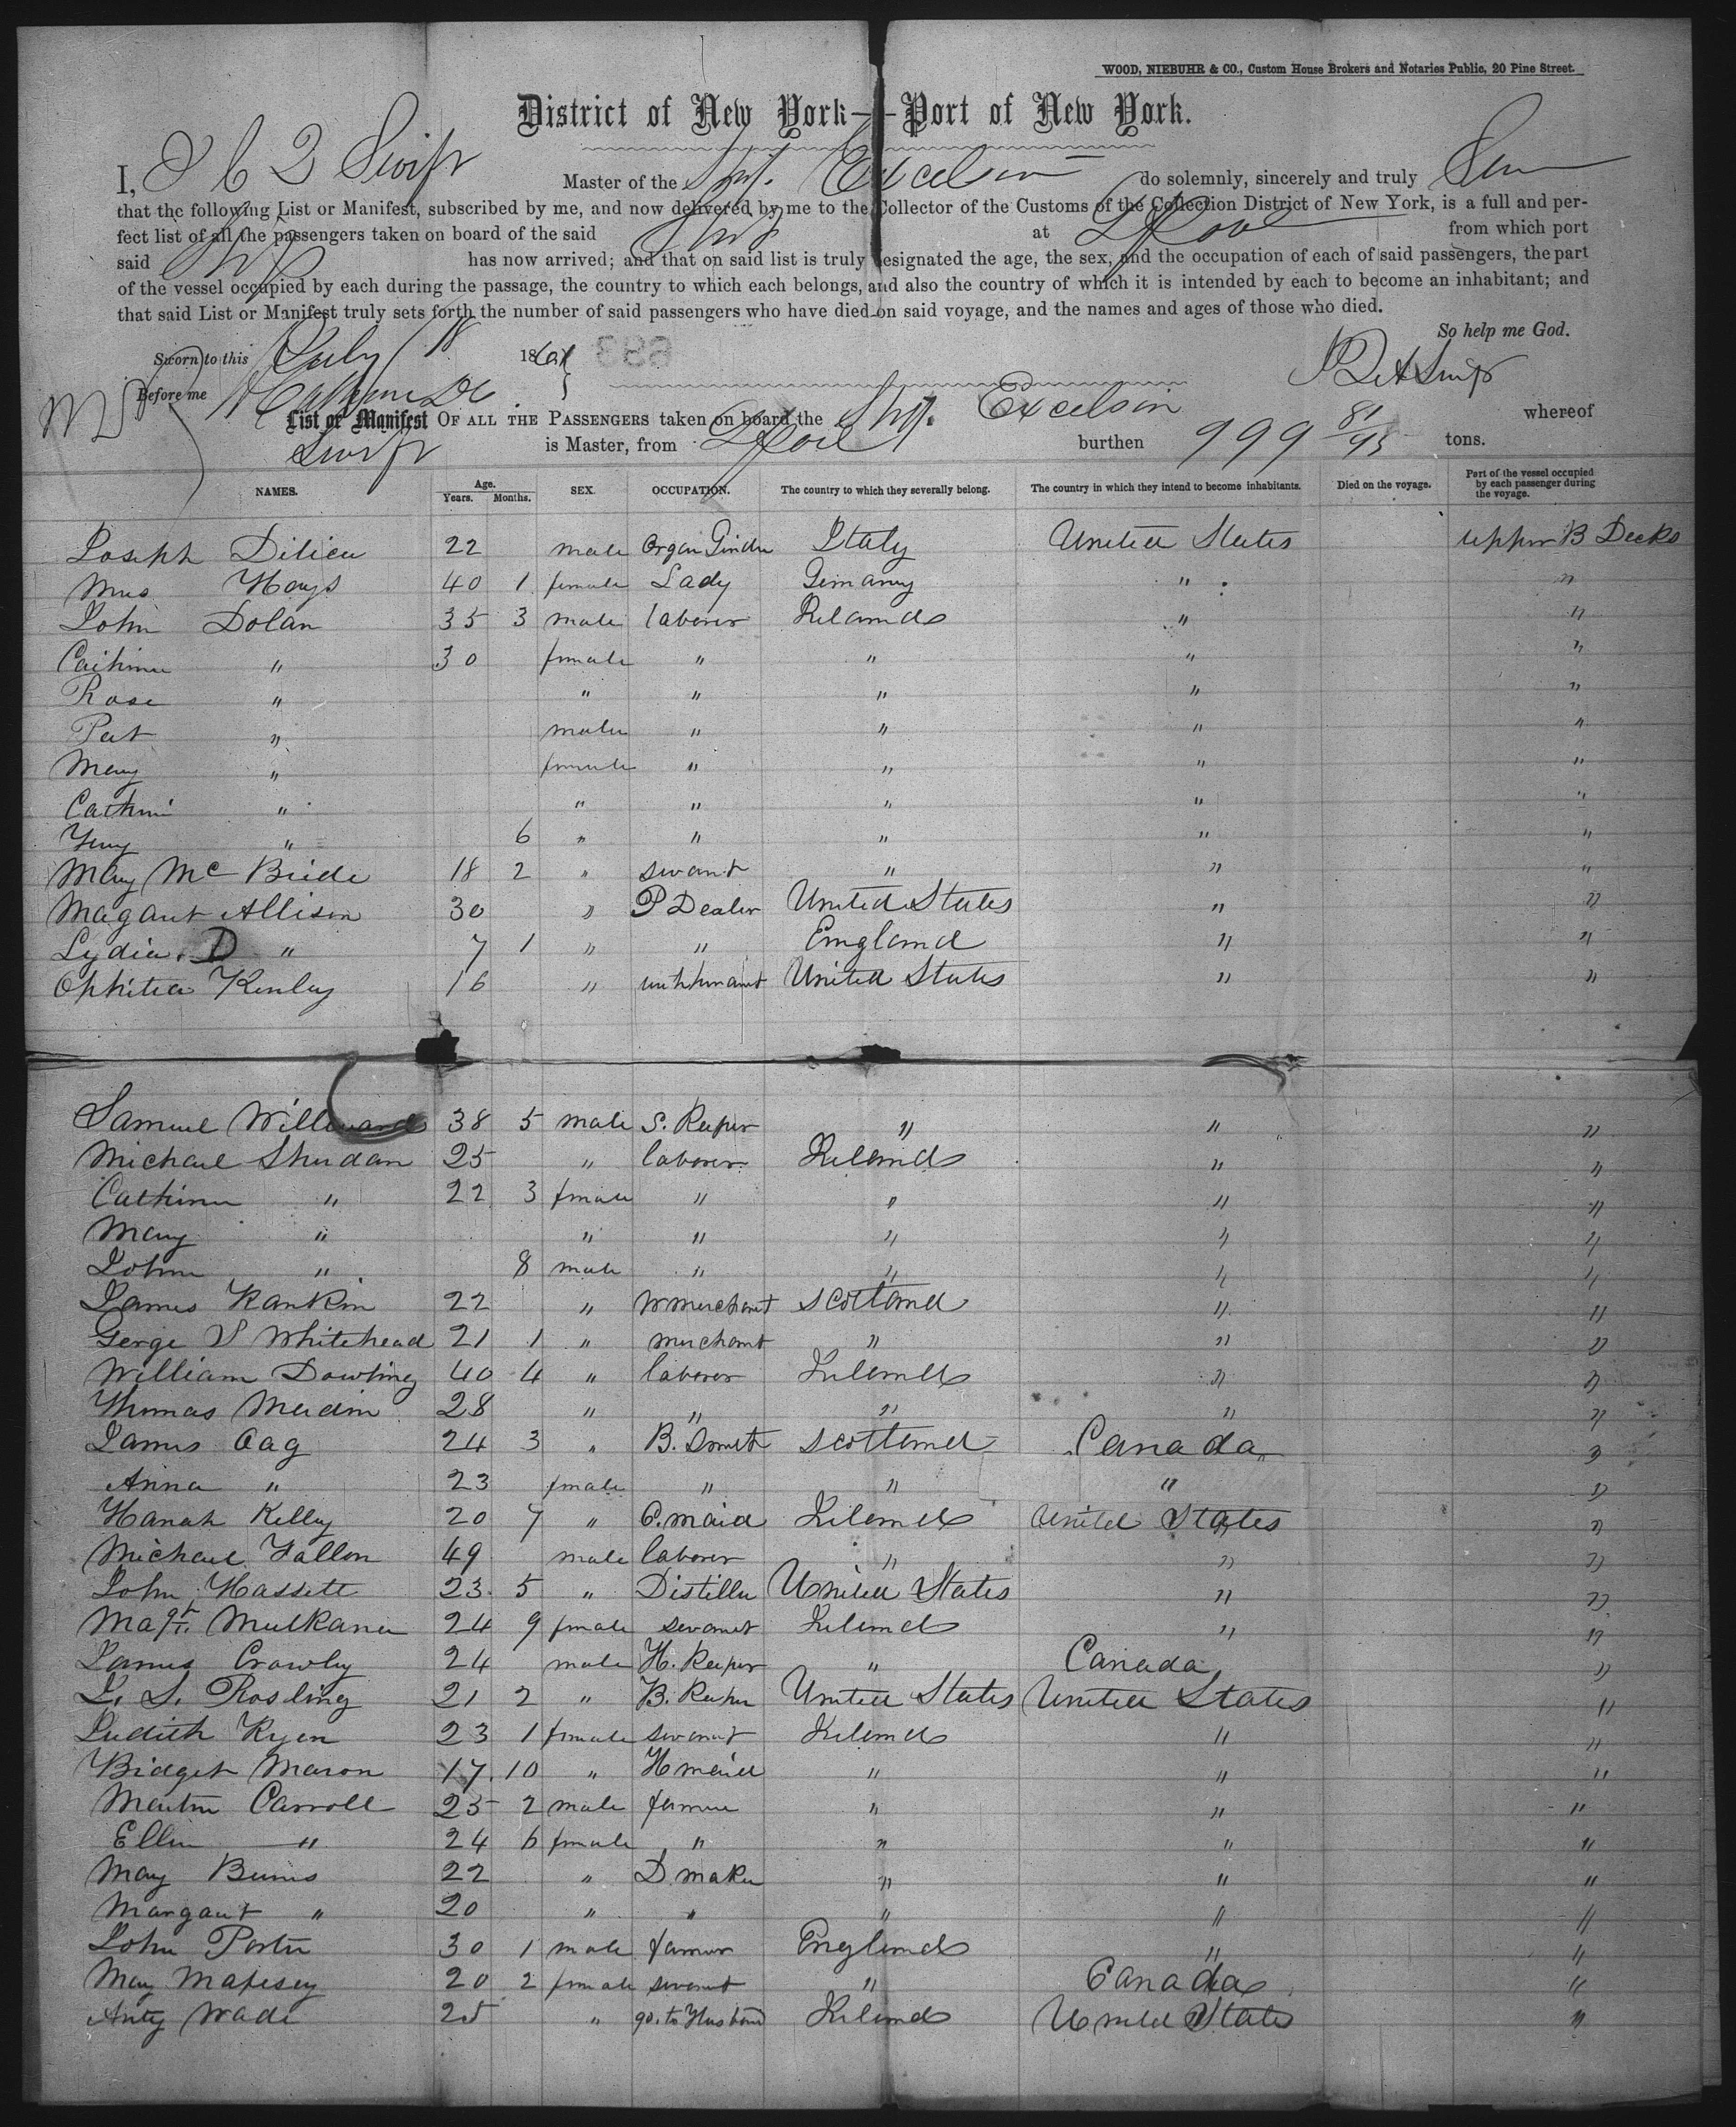 WOOD, NIEBUHR & CO., Custom House Brokers and Notaries Public, 20 Pine Street.
District of New York—Port of New York.
I, Swift Master of the Ship Excelsior do solemnly, sincerely and truly
that the following List or Manifest, subscribed by me, and now delivered by me to the Collector of the Customs of the Collection District of New York, is a full and per-
fect list of all the passengers taken on board of the said Ship at LPool from which port
said Ship has now arrived; and that on said list is truly designated the age, the sex, and the occupation of each of said passengers, the part
of the vessel occupied by each during the passage, the country to which each belongs, and also the country of which it is intended by each to become an inhabitant; and
that said List or Manifest truly sets forth the number of said passengers who have died on said voyage, and the names and ages of those who died.
So help me God.
Sworn to this July 18 186
Before me
List or Manifest OF ALL THE PASSENGERS taken on board the Ship Excelsior whereof
Swift is Master, from LPool burthen 999 81/95 tons.
NAMES. Age. Years. Months. SEX. OCCUPATION. The country to which they severally belong. The country in which they intend to become inhabitants. Died on the voyage. Part of the vessel occupied by each passenger during the voyage.
Joseph Dilicu 22 male Organ Grinder Italy United States upper B Decks
Mrs Hays 40 1 female Lady Germany " "
John Dolan 35 3 male laborer Ireland " "
Cathrine " 30 female " " " "
Rose " " " " " "
Pat " male " " " "
Mary " female " " " "
Cathrin " " " " " "
" 6 " " " " "
Mary McBride 18 2 " servant " " "
Magaret Allison 30 " P Dealer United States " "
Lydia D " 7 1 " " England " "
Ophilia Kenley 16 " United States " "
Samuel Willward 38 5 male S. Keeper " " "
Michael Sheridan 25 " laborer Ireland " "
Cathrine " 22 3 female " " " "
Mary " " " " " "
John " 8 male " " " "
James Rankin 22 " W merchant Scotland " "
Gerge S Whitehead 21 1 " merchant " " "
William Dowling 40 4 " laborer Ireland " "
Thomas Meedin 28 " " " " "
James Oag 24 3 " B. Smith Scotland Canada "
Anna " 23 female " " " "
Hanah Kelly 20 7 " C. maid Ireland United States "
Michael Fallon 49 male laborer " " "
John Hassett 23 5 " Distiller United States " "
Magt. Mulkaner 24 9 female servant Ireland " "
James Crowley 24 male H. Keeper " Canada "
J. S. Rosling 21 2 " B. Keeper United States United States "
Judith Ryan 23 1 female servant Ireland " "
Bidget Maron 17 10 " H maid " " "
Martin Carroll 25 2 male farmer " " "
Ellin " 24 6 female " " " "
Mary Burns 22 " D maker " " "
Margaret " 20 " " " " "
John Porter 30 1 male farmer England " "
Mary 20 2 female servant " Canada "
Anty Wade 25 " go. to Husband Ireland United States "